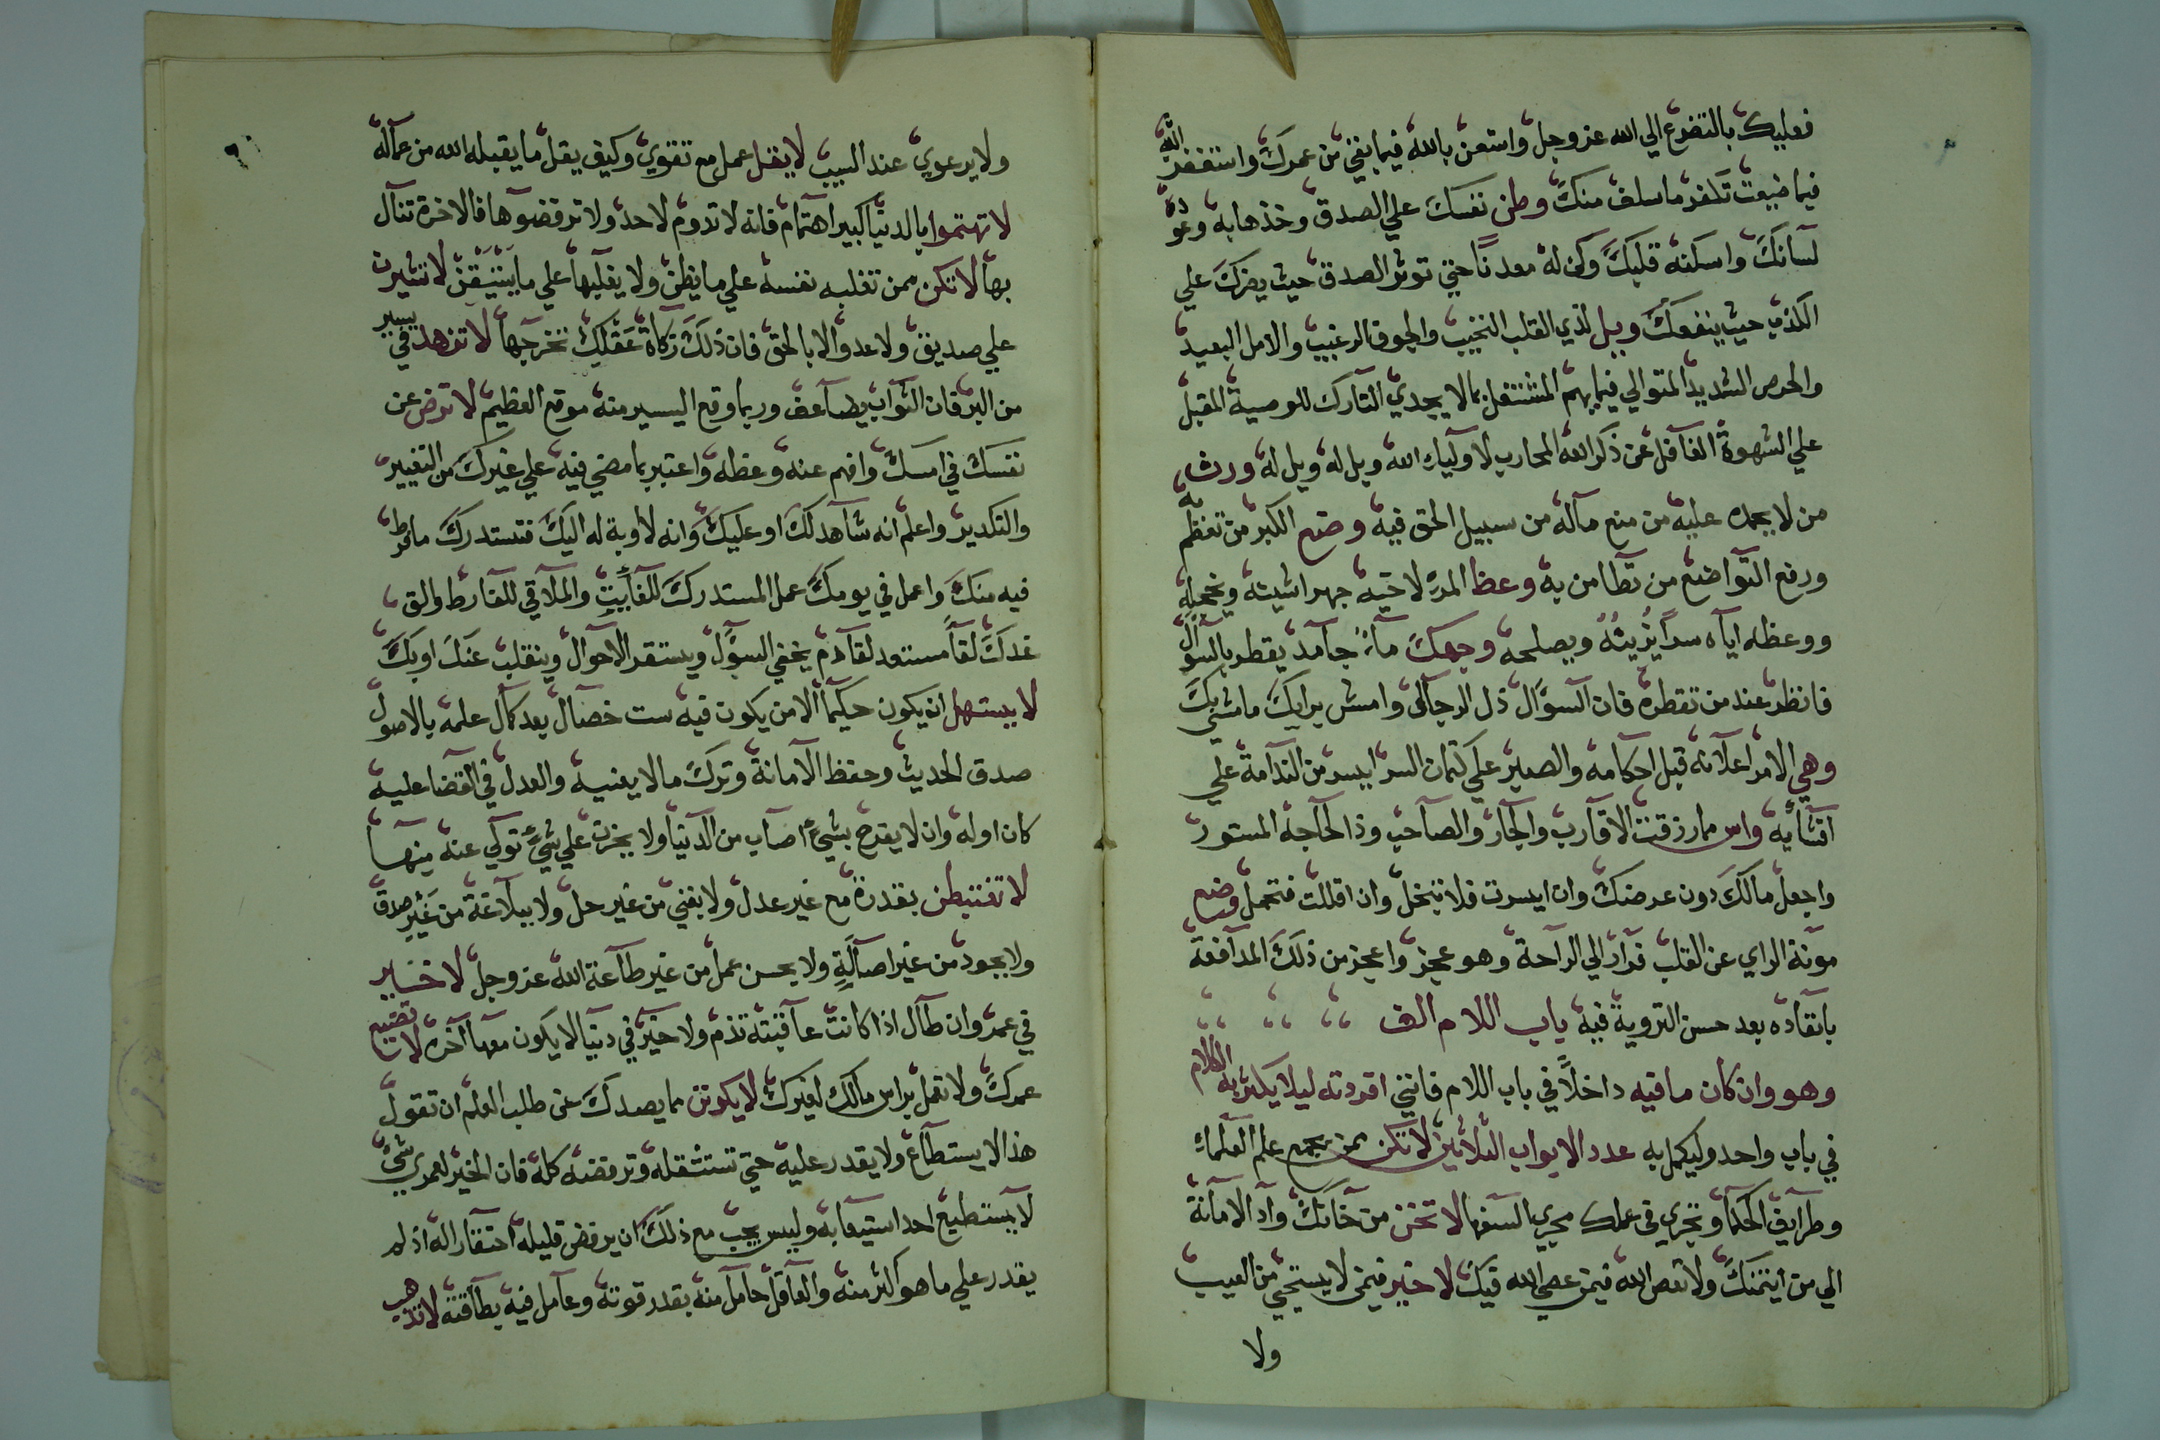 فعليك بالتضرع الي الله عز وجل واستعن بالله فيما بقي من عمرك واستغفر الله
فيما ضيعت تكفر ما سلف منك وطن نفسك علي الصدق وخذها به وعوده
لسانك واسكنه قلبك وكن له معدنا حتي توثر الصدق حيث يضرك علي
الكذب حيث ينفعك ويل لذي القلب النخيب والجوف الرغيب والامل البعيد
والحرص الشديد المتوالي فيما يهم المشتغل بما لا يجدي التارك للوصية المقبل
علي الشهوة الغافل عن ذكر الله المحارب لاولياء الله ويل له ويل له ورث
من لا يحمده عليه من منع ماله من سبيل الحق فيه وضع الكبر من تعظم به
ورفع التواضع من تطامن به وعظ المرء لاخيه جهرا شينه وتخجيله
ووعظه اياه سرا يزينه ويصلحه وجهك ماء جامد يقطر بالسوال
فانظر عند من تقطره فان السوال ذل الرجال وامش برايك ما مشي بك
وهي الامر اعلانه قبل احكامه والصبر علي كتمان السر ايسر من الندامة علي
افشايه واس مما رزقت الاقارب والجار والصاحب وذا الحاجة المستور
واجعل مالك دون عرضك وان ايسرت فلا تبخل وان اقللت فتحمل وضع
مونة الراي عن القلب فرار الي الراحة وهو عجز واعجز من ذلك المدافعة
بانقاده بعد حسن التروية فيه باب اللام الف
وهو وان كان ما فيه داخلا في باب اللام فانني افردته ليلا يكثر به الكلام
في باب واحد وليكمل به عدد الابواب الثلاثين لا تكن ممن يجمع علم العلماء
وطرايف الحكما ويجري في عملك مجري السفها لا تخن من خانك واد الامانة
الي من ايتمنك ولا تعص الله فيمن عصي الله فيك لا خير فيمن لا يستحي من العيب
ولا
ولا يرعوي عند الشيب لا يقل عمل مع تقوي وكيف يقل ما يقبله الله من عماله
لا تهتموا بالدنيا كبير اهتمام فانه لا تدوم لاحد ولا ترفضوها فالاخرة تنال
بها لا تكن ممن تغلبه نفسه علي ما يظن ولا يغلبها علي ما يستيقن لا تشيرن
علي صديق ولا عدو الا بالحق فان ذلك زكاة عقلك تخرجها لا تزهد في يسير
من البر فان الثواب يضاعف وربما وقع اليسير منه موقع العظيم لا ترض عن
نفسك في امسك وافهم عنه وعظه واعتبر بما مضي فيه علي غيرك من التغيير
والتكدير واعلم انه شاهد لك او عليك وانه لا وبة له اليك فتستدرك ما فرط
فيه منك واعمل في يومك عمل المستدرك للفايت والملاقي للفارط والق
غدك لقا مستعد لقادم يخفي السوال ويستقر الاحوال وينقلب عنك او بك
لا يستهل ان يكون حكيما الا من يكون فيه ست خصال بعد كمال علمه بالاصول
صدق الحديث وحفظ الامانة وترك ما لا يعنيه والعدل في القضا عليه
كان او له وان لا يفرح بشيء اصاب من الدنيا ولا يحزن علي شيء تولي عنه منها
لا تغتبطن بقدرة مع غير عدل ولا بغني من غير حل ولا ببلاغة من غير صدق
ولا بجود من غير اصالة ولا بحسن عمل من غير طاعة الله عز وجل لا خير
في عمر وان طال اذا كانت عاقبته تذم ولا خير في دنيا لا يكون معها اخره لا تضيع
عمرك ولا تمل براس مالك لغيرك لا يكونن مما يصدك عن طلب العلم ان تقول
هذا لا يستطاع ولا يقدر عليه حتي تستثقله وترفضه كله فان الخير لعمري شيء
لا يستطيع احد استيعابه وليس يجب مع ذلك ان يرفض قليله احتقارا له اذ لم
يقدر علي ما هو اكثر منه والعاقل حامل منه بقدر قوته وعامل فيه بطاقته لا تذهب